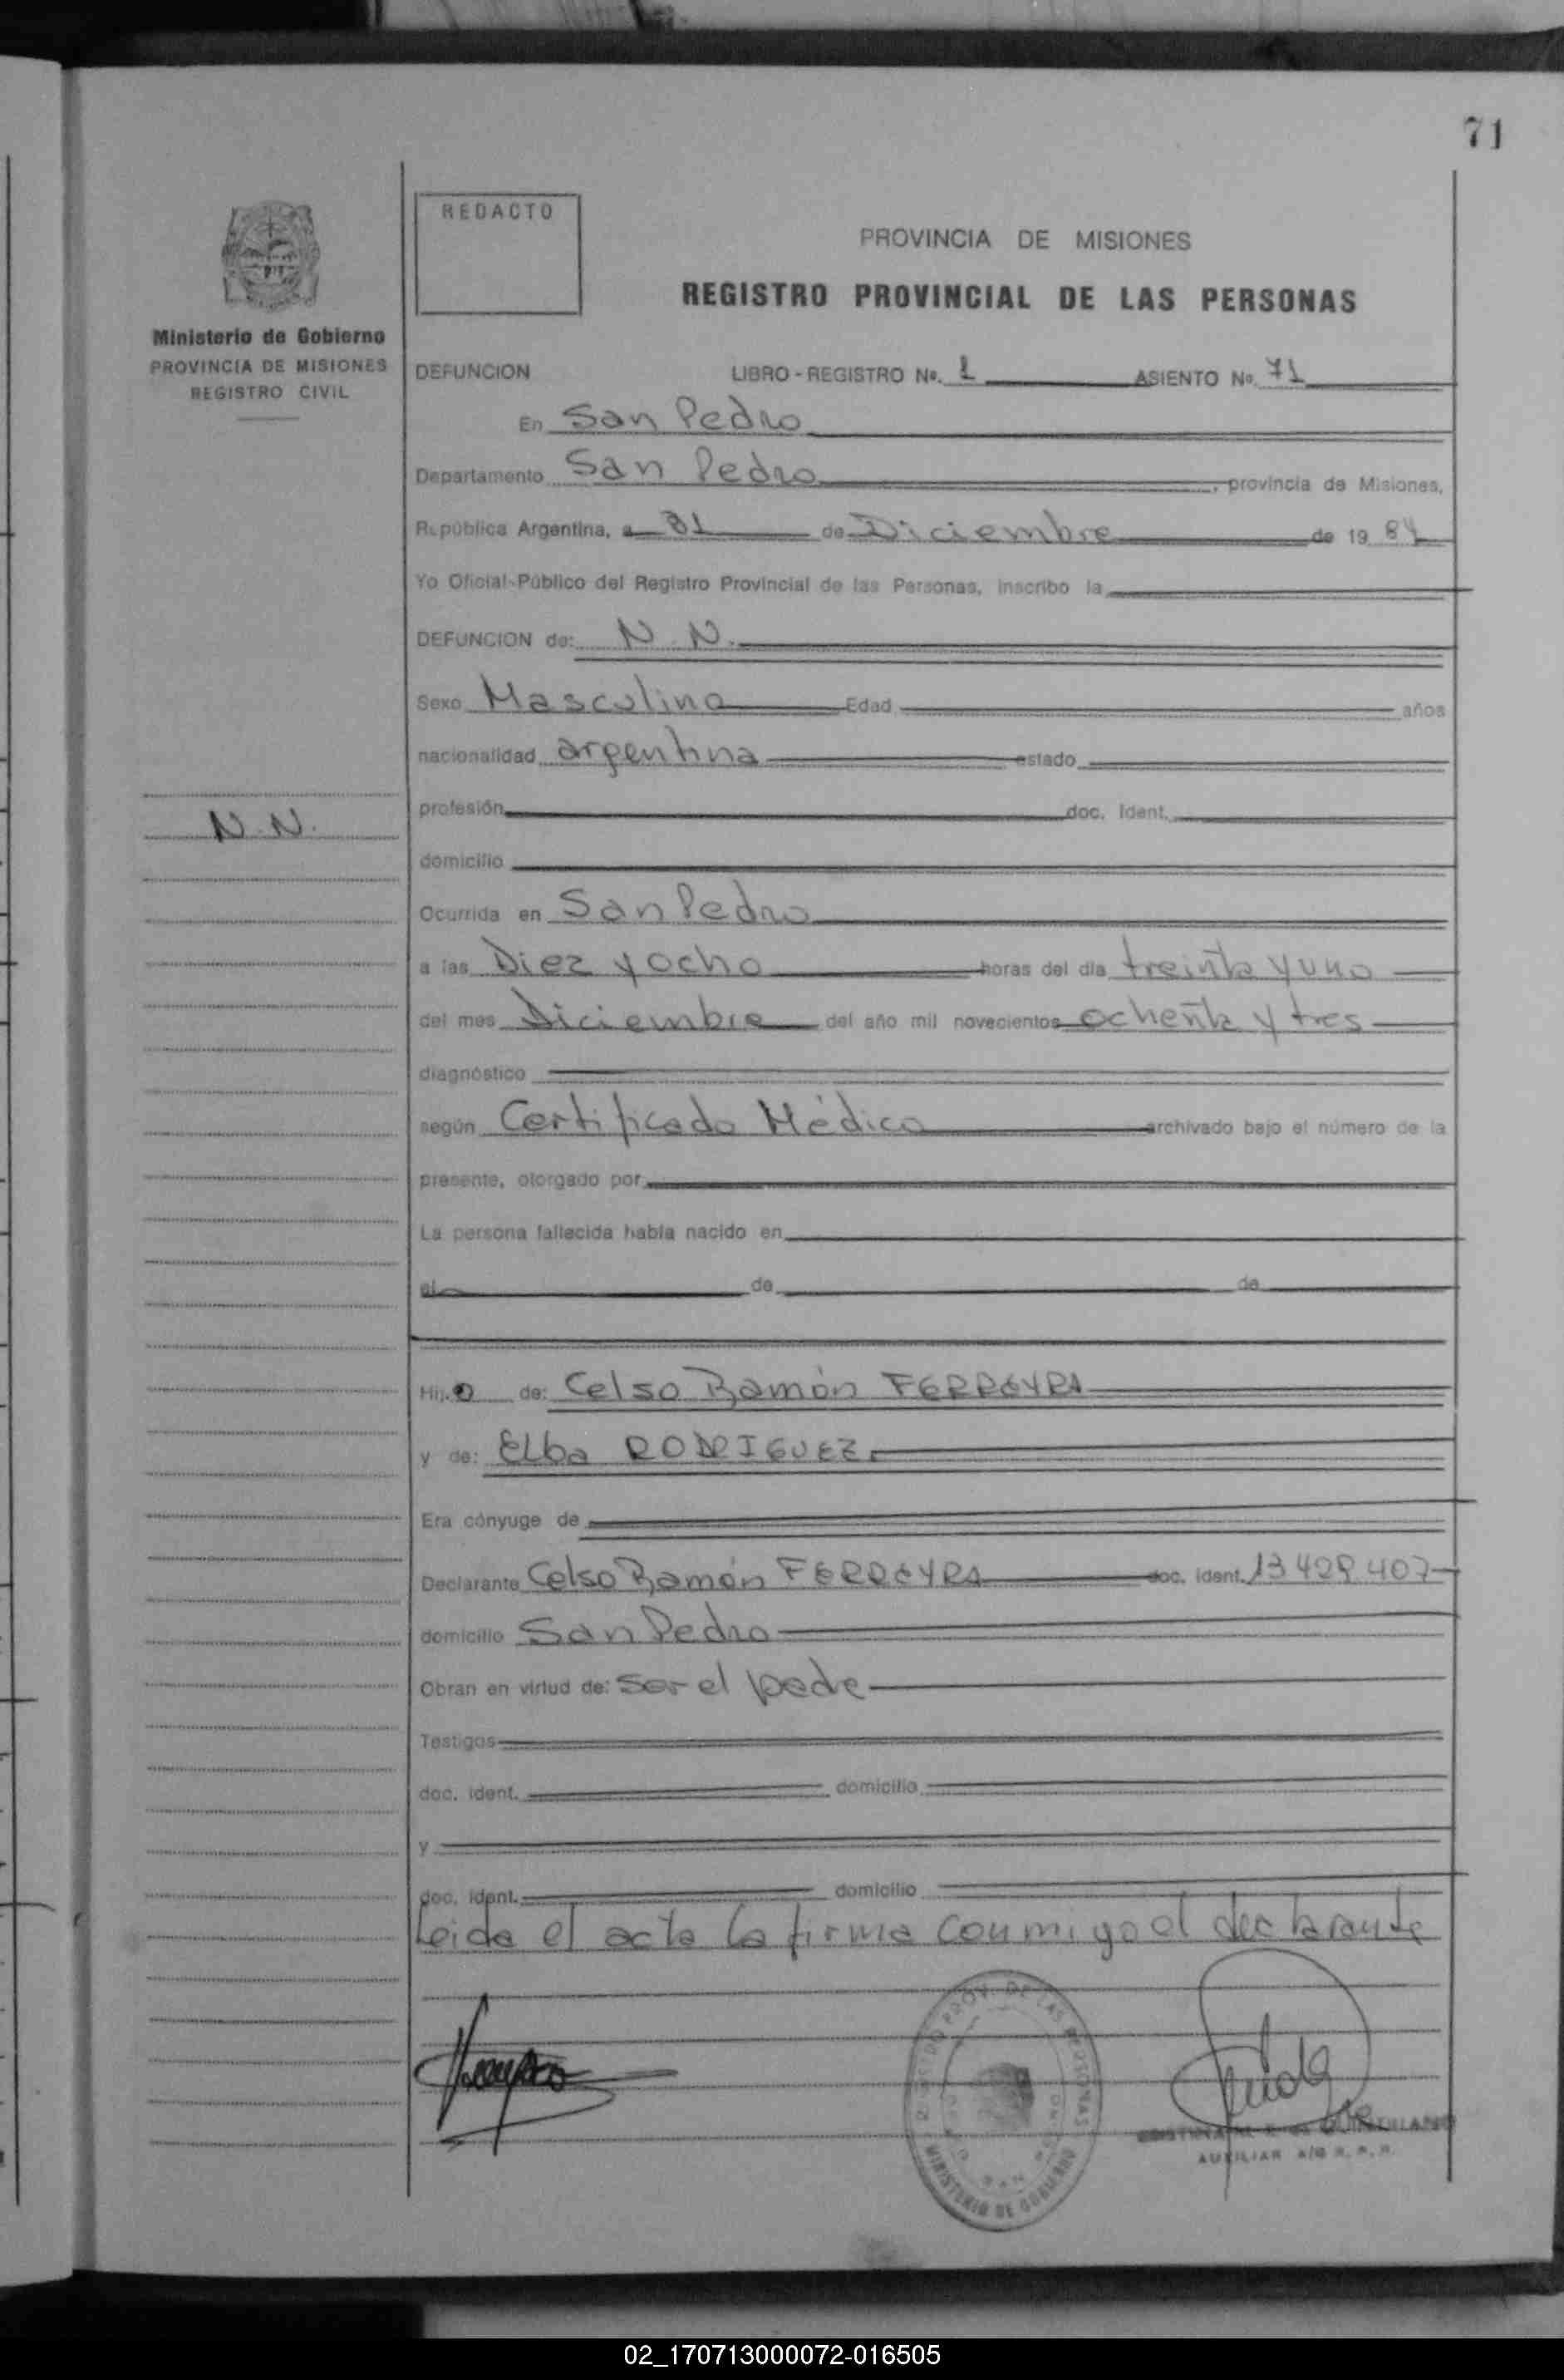 71
REDACTO
PROVINCIA DE MISIONES
REGISTRO PROVINCIAL DE LAS PERSONAS
Ministerio de Gobierno
PROVINCIA DE MISIONES
REGISTRO CIVIL
DEFUNCION LIBRO - REGISTRO Nº. 1 ASIENTO Nº 71
En San Pedro
Departamento San Pedro, provincia de Misiones,
República Argentina, a 31 de Diciembre de 19 84
Yo Oficial Público del Registro Provincial de las Personas, inscribo la
DEFUNCION de: N. N.
Sexo Masculino Edad años
nacionalidad argentina estado
profesión doc. Ident.
N. N.
domicilio
Ocurrida en San Pedro
a las Diez y ocho horas del día treinta y uno
del mes Diciembre del año mil novecientos ochenta y tres
diagnóstico
según Certificado Médico archivado bajo el número de la
presente, otorgado por
La persona fallecida había nacido en
el de de
Hij.o de: Celso Ramón FERREYRA
y de: ELba RODRIGUEZ.
Era cónyuge de
Declarante Celso Ramón FERREYRA doc. ident. 13 429 407
domicilio San Pedro
Obran en virtud de: ser el padre
Testigos
doc. ident. domicilio
y
doc. ident. domicilio
Leida el acta la firma conmigo el declarante
REGISTRO PROV. DE LAS PERSONAS
MINISTERIO DE GOBIERNO
AUXILIAR A/C R. P. P.
02_170713000072-016505